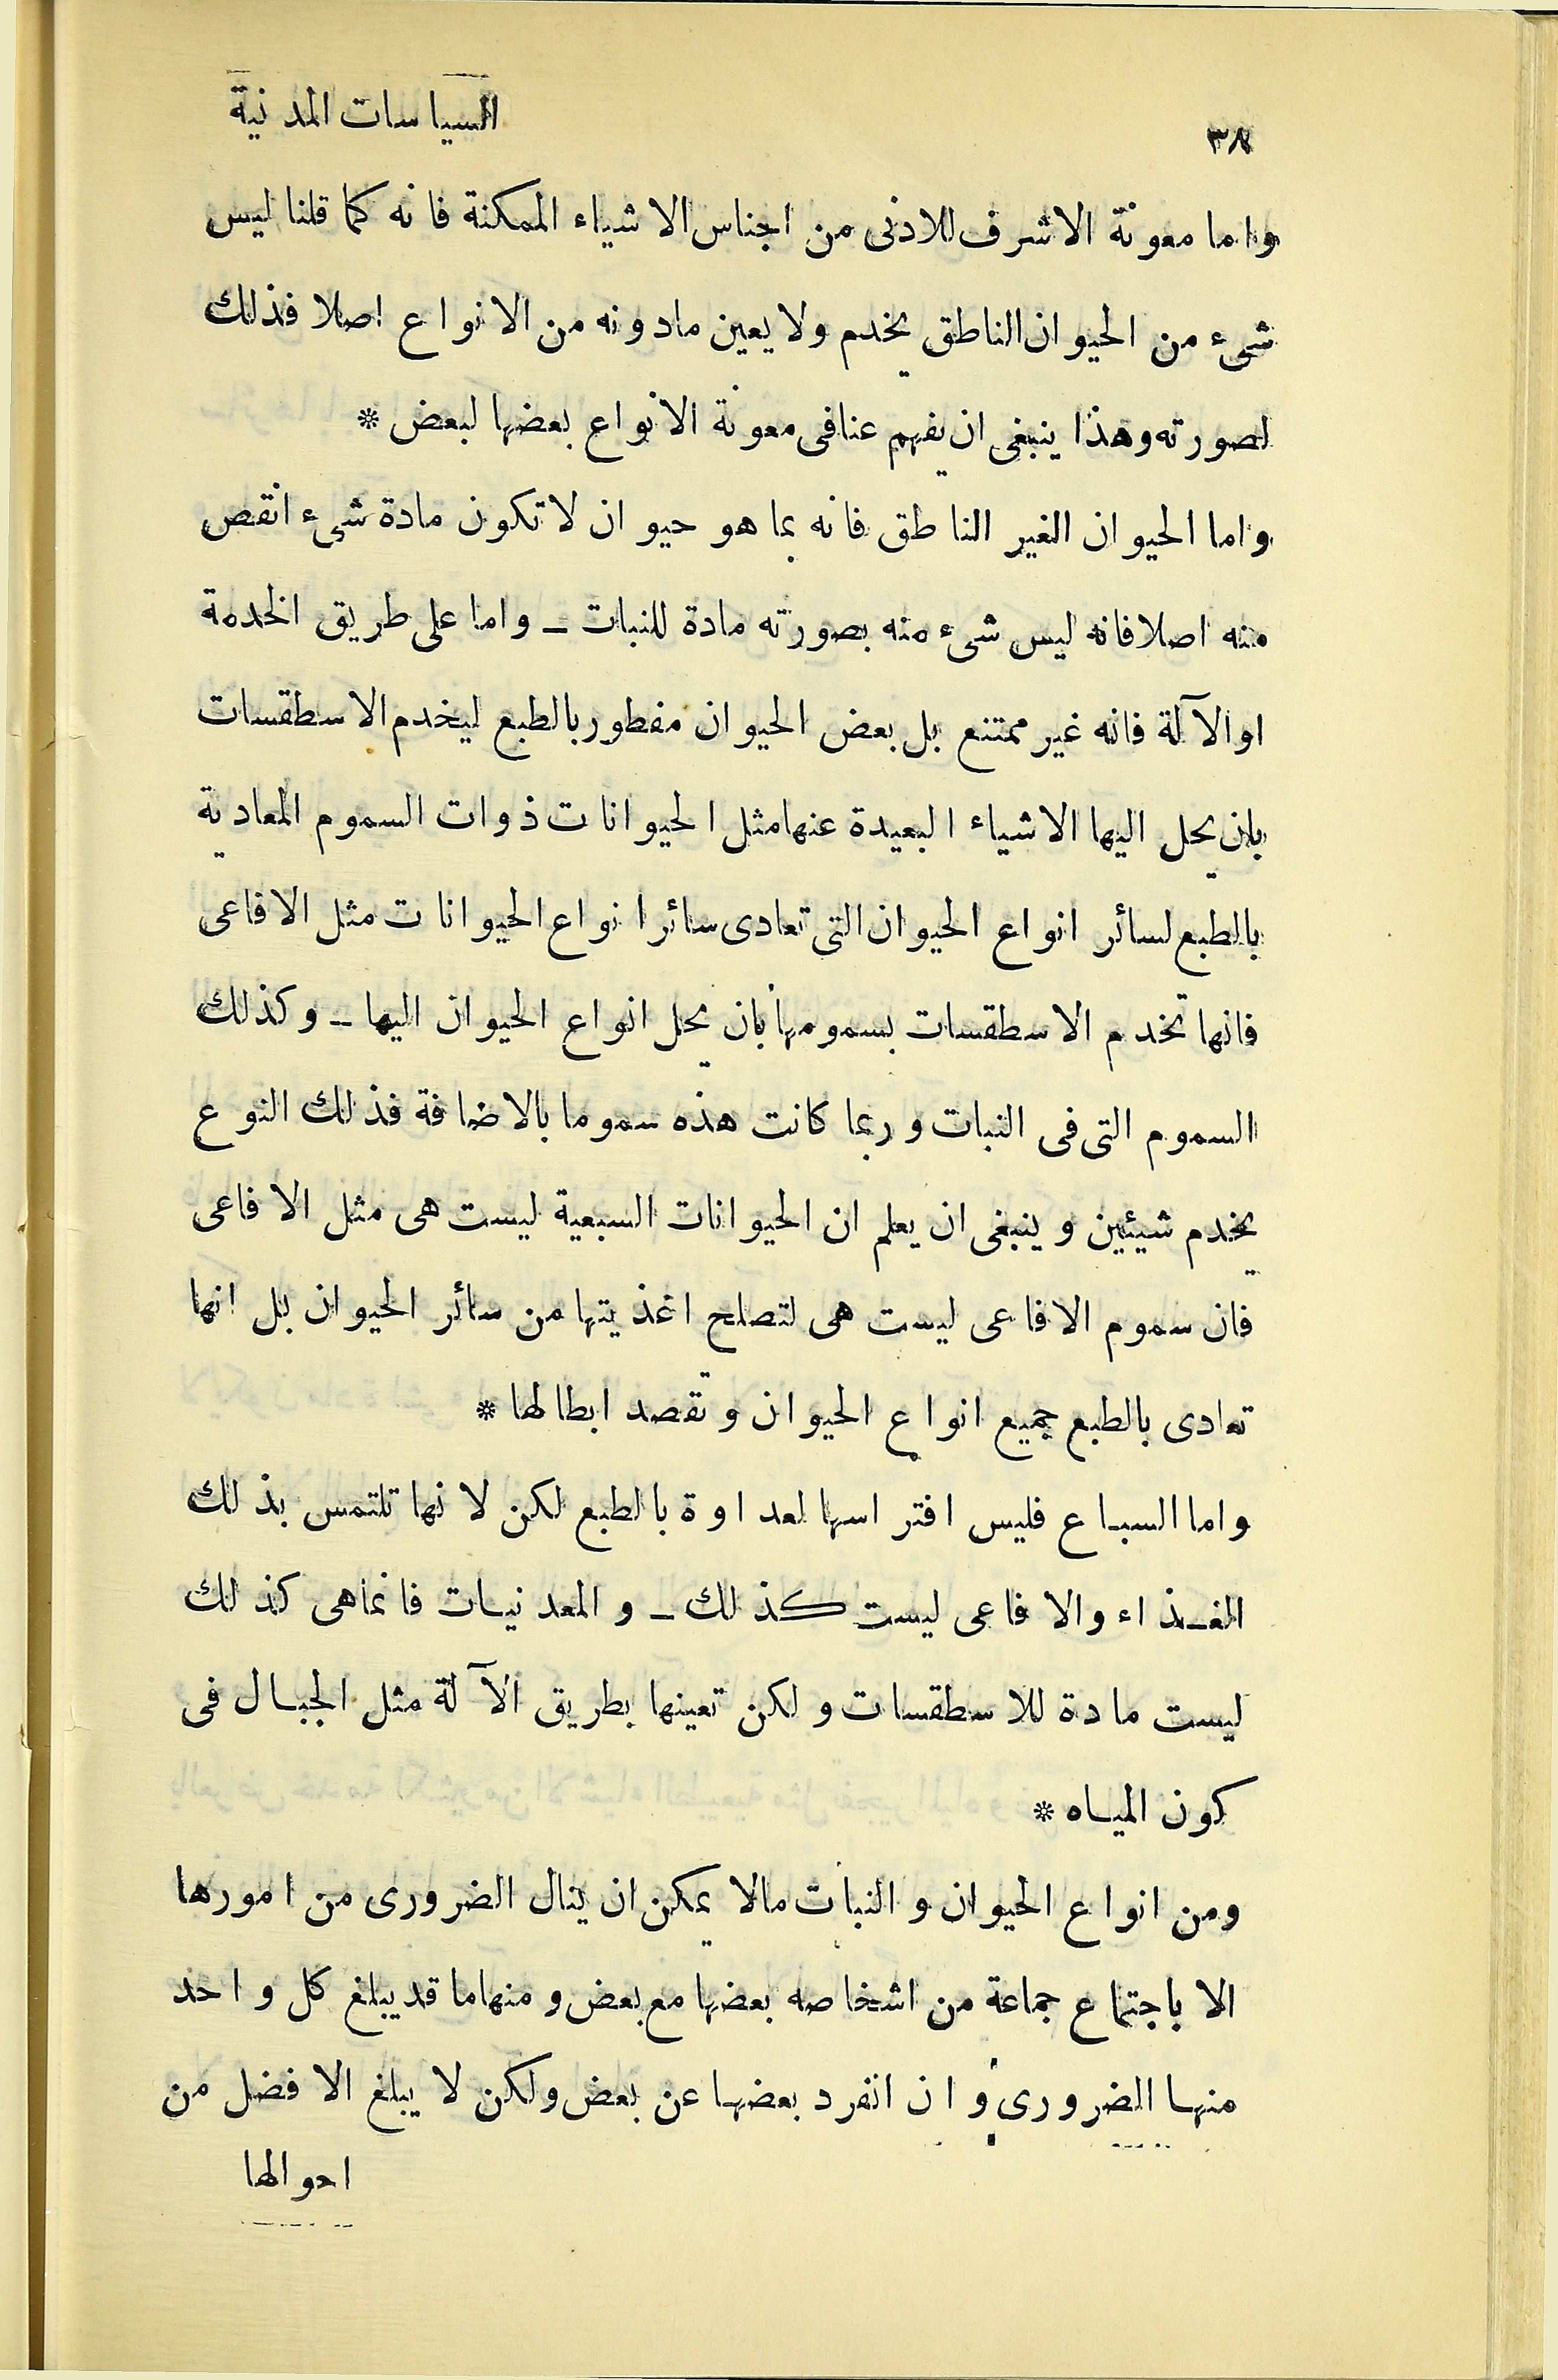 ٣٨
السياسات المدنية
واما معونة الاشرف للادنى من اجناس الاشياء الممكنة فانه كما قلنا ليس
شىء من الحيوان الناطق يخدم ولا يعين مادونه من الانواع اصلا فذلك
لصورته وهذا ينبغى ان يفهم عنا فى معونة الانواع بعضها لبعض *
واما الحيوان الغير الناطق فانه بما هو حيوان لا تكون مادة شىء انقص
منه اصلا فانه ليس شىء منه بصورته مادة للنبات ـ واما على طريق الخدمة
او الآلة فانه غير ممتنع بل بعض الحيوان مفطور بالطبع ليخدم الاسطقسات
بان يحل اليها الاشياء البعيدة عنها مثل الحيوانات ذوات السموم المعادية
بالطبع لسائر انواع الحيوان التى تعادى سائر انواع الحيوانات مثل الافاعى
فانها تخدم الاسطقسات بسمومها بان يحل انواع الحيوان اليها ـ وكذلك
السموم التى فى النبات و ربما كانت هذه سموما بالاضافة فذلك النوع
يخدم شيئين وينبغى ان يعلم ان الحيوانات السبعية ليست هى مثل الافاعى
فان سموم الافاعى ليست هى لتصلح اغذيتها من سائر الحيوان بل انها
تعادى بالطبع جميع انواع الحيوان وتقصد ابطالها *
واما السباع فليس افتراسها لعداوة بالطبع لكن لانها تلتمس بذلك
الغـذاء والافاعى ليست كذلك ـ والمعدنيـات فانما هى كذلك
ليست مادة للاسطقسات ولكن تعينها بطريق الآلة مثل الجبـال فى
كون الميـاه *
ومن انواع الحيوان والنبات مالا يمكن ان ينال الضرورى من امورها
الا باجتماع جماعة من اشخاصه بعضها مع بعض ومنها ما قد يبلغ كل واحد
منهـا الضرورى وان انفرد بعضهـا عن بعض ولكن لا يبلغ الافضل من
احوالها